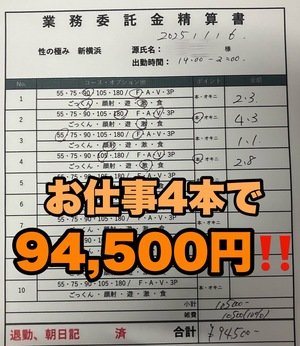 業務委託金精算書
2025 11 16
性の極み 新横浜 源氏名： 様
出勤時間：19:00-2:00
No. コース・オプション別 ポイント 金額
1 55・75・90・105・180/ F・A・V・3P 本・オキニ 2.3
ごっくん・顔射・遊・激・食
2 55・75・90・105・180/ F・A・V・3P 本・オキニ 4.3
ごっくん・顔射・遊・激・食
3 55・75・90・105・180/ F・A・V・3P 本・オキニ 1.1
ごっくん・顔射・遊・激・食
4 55・75・90・105・180/ F・A・V・3P 本・オキニ 2.8
ごっくん・顔射・遊・激・食
お仕事4本で
94,500円‼️
10 55・75・90・105・180/ F・A・V・3P 本・オキニ
ごっくん・顔射・遊・激・食
小計 105000-
雑費 10500(10%)
退勤、朝日記 済 合計 ¥94500-